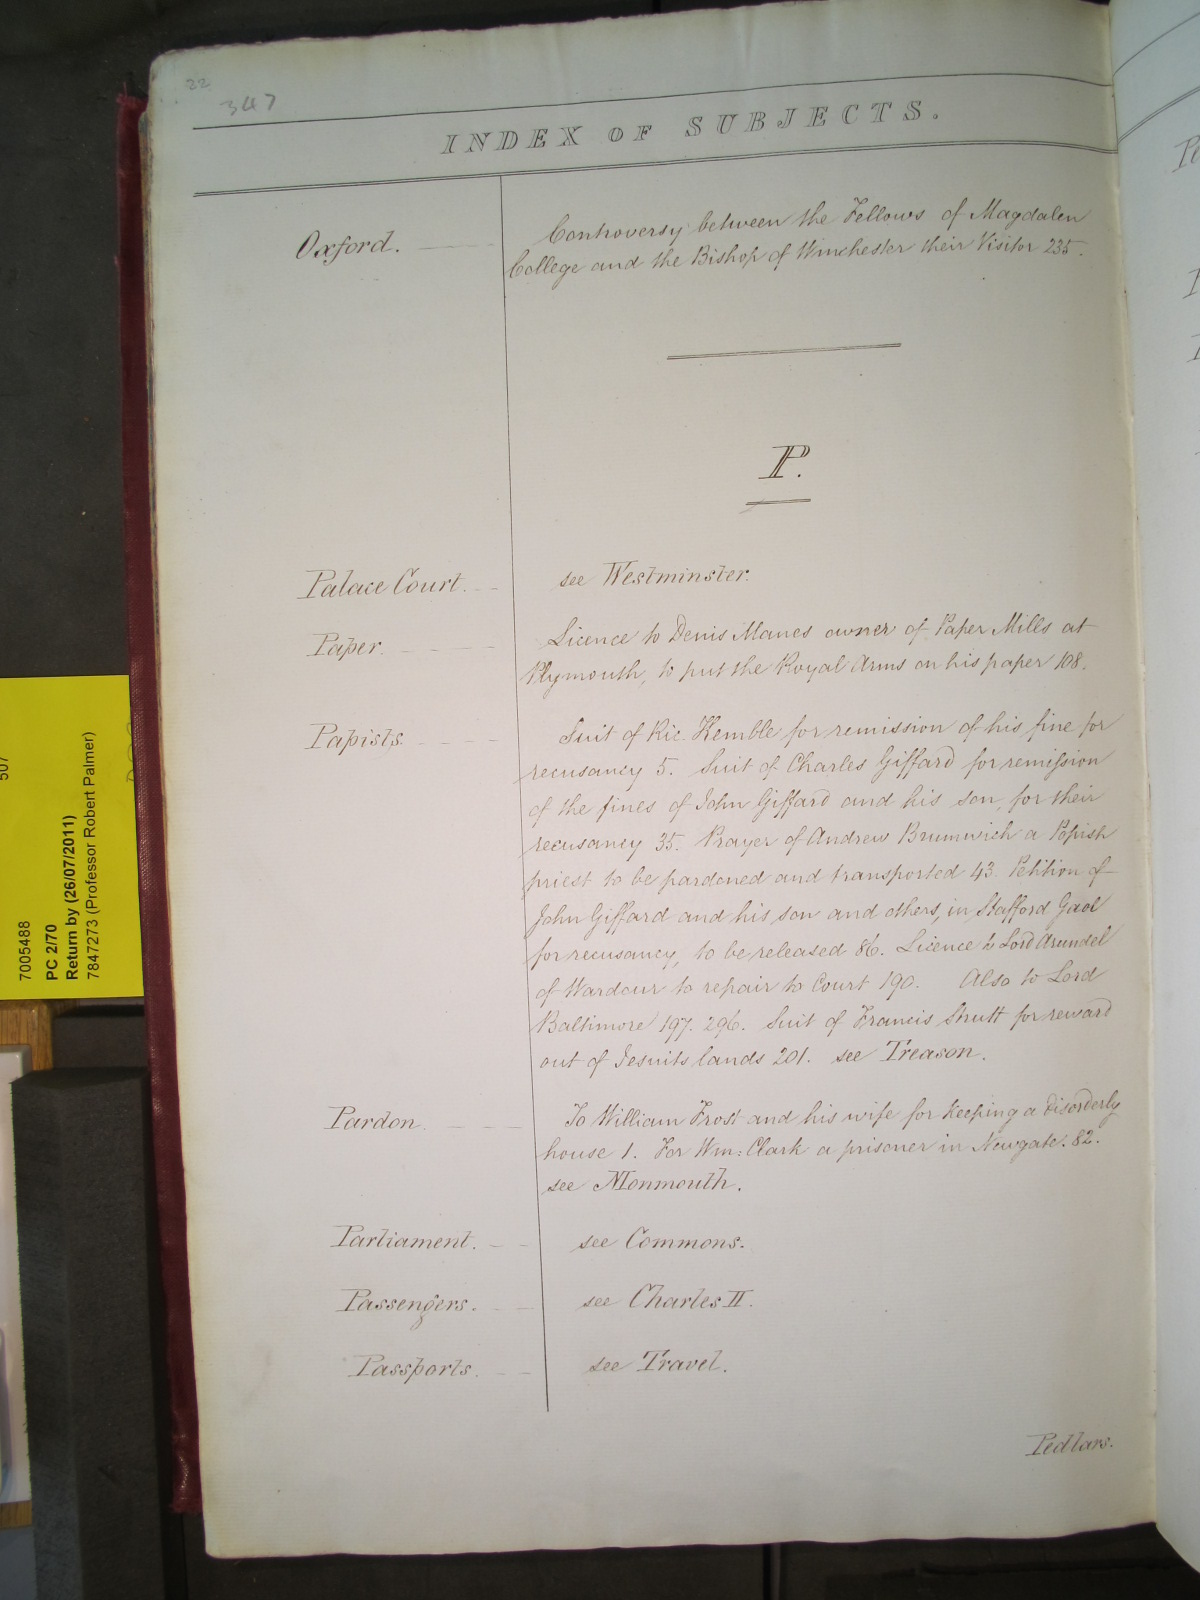 22
347
INDEX OF SUBJECTS.
Oxford.
Controversy between the Fellows of Magdalen
College and the Bishop of Winchester their Visitor 235.
P.
Palace Court.
see Westminster.
Paper.
Licence to Denis Manes owner of Paper Mills at
Plymouth, to put the Royal Arms on his paper 108.
Papists.
Suit of Ric. Kemble for remission of his fine for
recusancy 5. Suit of Charles Giffard for remission
of the fines of John Giffard and his son, for their
recusancy 35. Prayer of Andrew Brumwich a Popish
priest to be pardoned and transported 43. Petition of
John Giffard and his son and others, in Stafford Gaol
for recusancy, to be released 86. Licence to Lord Arundel
of Wardour to repair to Court 190. Also to Lord
Baltimore 197. 296. Suit of Francis Strutt for reward
out of Jesuits lands 201. see Treason.
Pardon.
To William Frost and his wife for keeping a disorderly
house 1. For Wm: Clark a prisoner in Newgate. 82.
see Monmouth.
Parliament.
see Commons.
Passengers.
see Charles II.
Passports.
see Travel.
Pedlars.
507
7005488
PC 2/70
Return by (26/07/2011)
7847273 (Professor Robert Palmer)